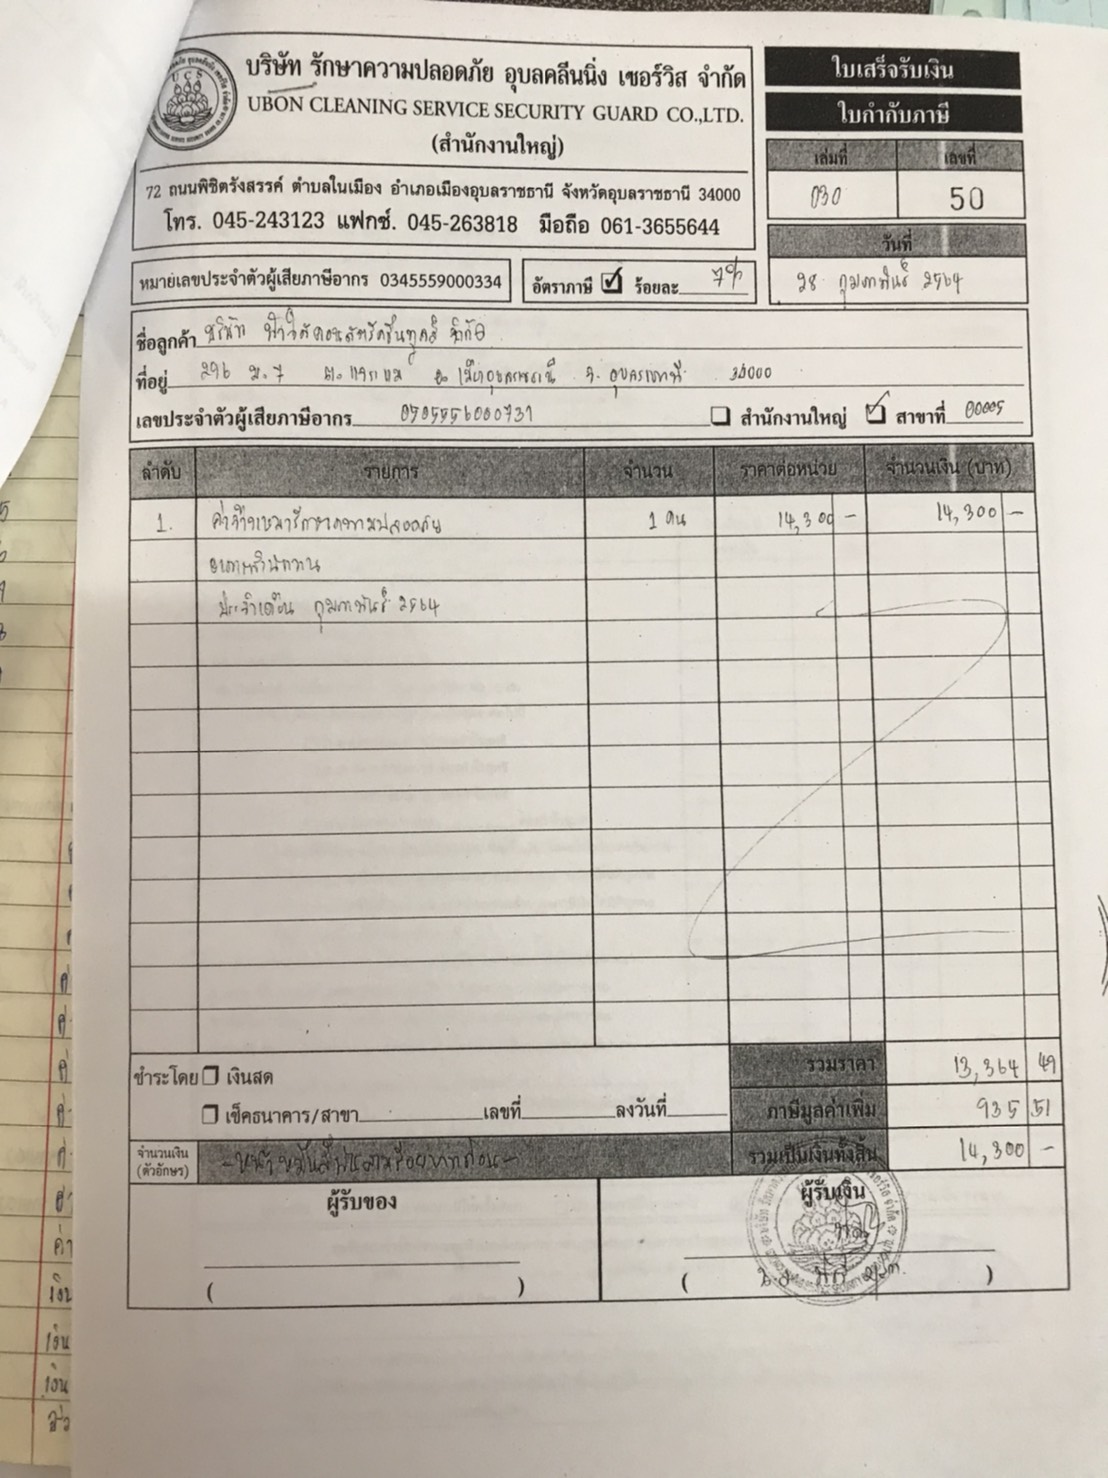 บริษัท รักษาความปลอดภัย อุบลคลีนนิ่ง เซอร์วิส จำกัด
UBON CLEANING SERVICE SECURITY GUARD CO.,LTD.
(สำนักงานใหญ่)
72 ถนนพิชิตรังสรรค์ ตำบลในเมือง อำเภอเมืองอุบลราชธานี จังหวัดอุบลราชธานี 34000
โทร. 045-243123 แฟกซ์. 045-263818 มือถือ 061-3655644
UCS
ใบเสร็จรับเงิน
ใบกำกับภาษี
เล่มที่ เลขที่
030 50
วันที่
28 กุมภาพันธ์ 2564
หมายเลขประจำตัวผู้เสียภาษีอากร 0345559000334
อัตราภาษี ร้อยละ 7%
ชื่อลูกค้า บริษัท จำกัด
ที่อยู่ 296 ม.7 อ.เมืองอุบลราชธานี จ.อุบลราชธานี 34000
เลขประจำตัวผู้เสียภาษีอากร 0505556000731 สำนักงานใหญ่ สาขาที่ 00005
ลำดับ รายการ จำนวน ราคาต่อหน่วย จำนวนเงิน (บาท)
1. ค่าจ้างเหมารักษาความปลอดภัย 1 คน 14,300 – 14,300 –
อาคารสำนักงาน
ประจำเดือน กุมภาพันธ์ 2564
ชำระโดย เงินสด
รวมราคา 13,364 49
เช็คธนาคาร/สาขา เลขที่ ลงวันที่
ภาษีมูลค่าเพิ่ม 935 51
จำนวนเงิน (ตัวอักษร) -หนึ่งหมื่นสี่พันสามร้อยบาทถ้วน-
รวมเป็นเงินทั้งสิ้น 14,300 –
ผู้รับของ ผู้รับเงิน
( ) ( )